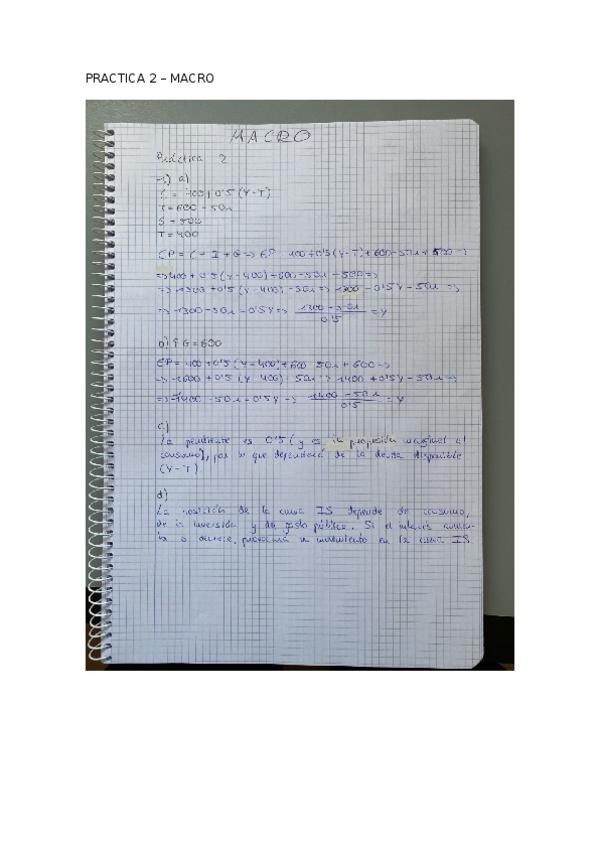 PRACTICA 2 – MACRO
MACRO
Práctica 2
1) a)
C = 400 + 0'5 (Y-T)
I = 600 - 50i
G = 500
T = 400
EP = C + I + G => EP = 400 + 0'5 (Y-T) + 600 - 50i + 500 =>
=> 400 + 0'5 (Y - 400) + 600 - 50i + 500 =>
=> 1500 + 0'5 (Y - 400) - 50i => 1300 - 0'5Y - 50i =>
=> 1300 - 50i - 0'5Y => 1300 - 50i / 0'5 = Y
b) G = 600
EP = 400 + 0'5 (Y - 400) + 600 - 50i + 600 =>
=> 1600 + 0'5 (Y - 400) - 50i => 1400 + 0'5Y - 50i =>
=> 1400 - 50i - 0'5Y => 1400 - 50i / 0'5 = Y
c)
La pendiente es 0'5 (y es la propensión marginal al
consumo), por lo que dependerá de la deuda disponible
(Y-T)
d)
La posición de la curva IS depende de consumo,
de la inversión y de gasto público. Si el interés aumen-
ta o decrece, provocará un movimiento en la curva IS